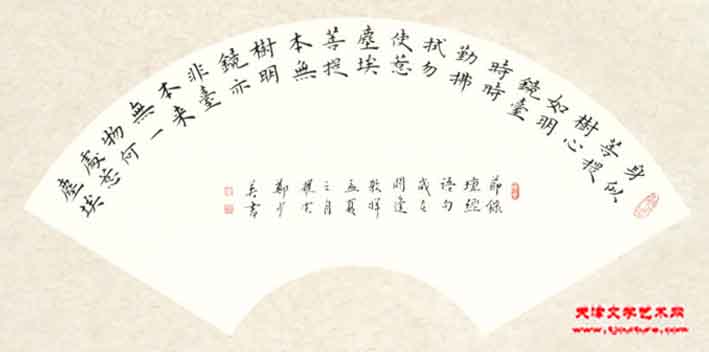 身似
菩提
樹心
如明
鏡臺
時時
勤拂
拭勿
使惹
塵埃
菩提
本無
樹明
鏡亦
非臺
本来
無一
物何
處惹
塵埃
節錄
壇經
語句
歲在
孟夏
之月
鄭少
英書
天津文学艺术网
www.tjculture.com